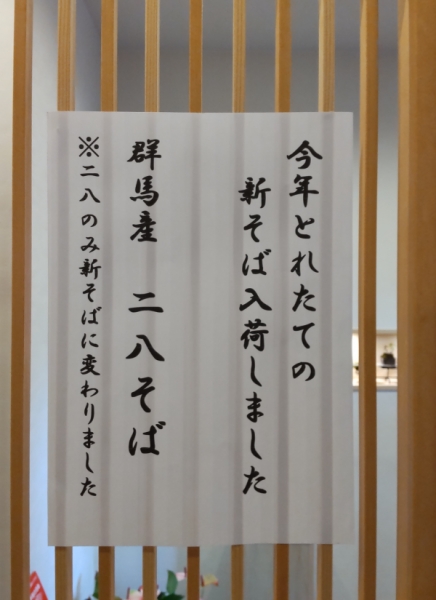 今年とれたての
新そば入荷しました
群馬産　二八そば
※二八のみ新そばに変わりました